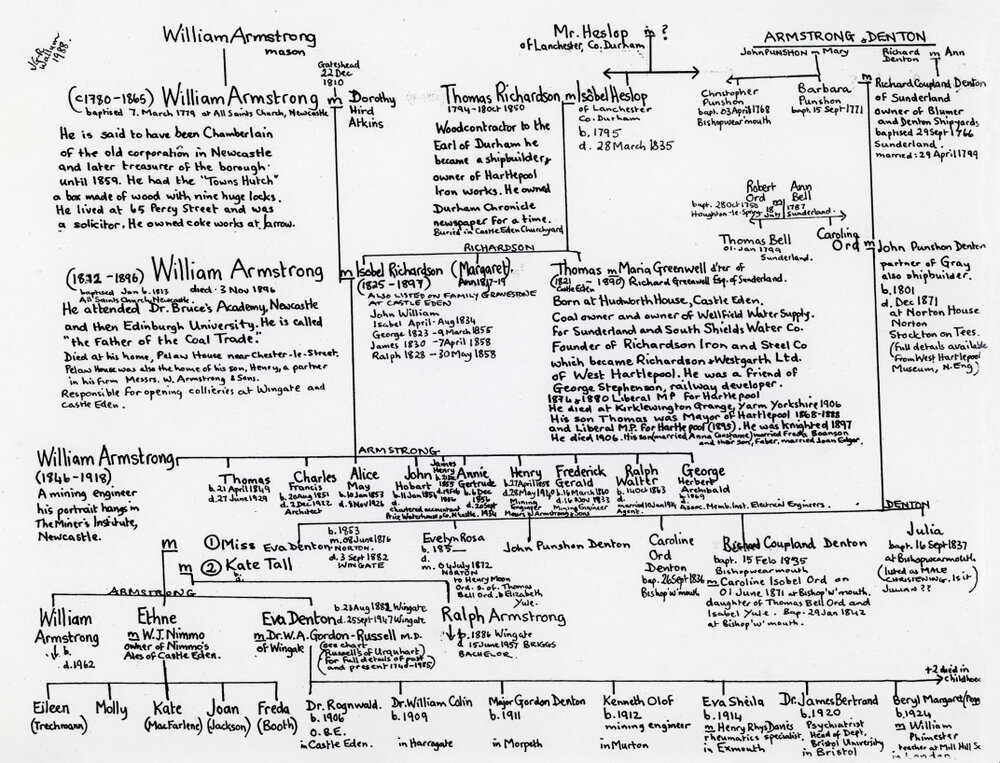 William Armstrong
mason
Mr. Heslop m ?
of Lanchester, Co. Durham
ARMSTRONG & DENTON
John PUNSHON m Mary
Richard Denton m Ann
1988.
Gateshead
22 Dec
1810
(c1780-1865) William Armstrong m Dorothy
Hird
Atkins
baptised 7. March 1779 at All Saints Church, Newcastle
He is said to have been Chamberlain
of the old corporation in Newcastle
and later treasurer of the borough
until 1859. He had the "Towns Hutch"
a box made of wood with nine huge locks.
He lived at 65 Percy Street and was
a solicitor. He owned coke works at Jarrow.
Thomas Richardson m Isobel Heslop
1794 - Oct 1850
of Lanchester
Co. Durham
b. 1795
d. 28 March 1835
Woodcontractor to the
Earl of Durham he
became a shipbuilder,
owner of Hartlepool
Iron works. He owned
Durham Chronicle
newspaper for a time.
Buried in Castle Eden Churchyard
Christopher
Punshon
bapt. 03 April 1768
Bishopwearmouth
Barbara
Punshon
baph. 15 Sept 1771
m Richard Coupland Denton
of Sunderland
owner of Blumer
and Denton Shipyards
baptised 29 Sept 1766
Sunderland
married: 29 April 1799
Robert
Ord
Ann
Bell
bapt. 28 Oct 1750
Houghton-le-Spring
m
18
July
1787
Sunderland.
Thomas Bell
01. Jan 1799
Sunderland.
Caroline
Ord
m John Punshon Denton
partner of Gray
also shipbuilder.
b. 1801
d. Dec 1871
at Norton House
Norton
Stockton on Tees.
(Full details available
from West Hartlepool
Museum, N. Eng)
RICHARDSON
William Armstrong
died. 3 Nov 1896
baptised Jan 6. 1813
All Saints Church, Newcastle.
He attended Dr. Bruce's Academy, Newcastle
and then Edinburgh University. He is called
"the Father of the Coal Trade."
Died at his home, Pelaw House near Chester-le-Street.
Pelaw House was also the home of his son, Henry, a partner
in his firm Messrs. W. Armstrong & Sons.
Responsible for opening collieries at Wingate and
Castle Eden.
m Isobel Richardson
(1825 - 1897)
ALSO LISTED ON FAMILY GRAVESTONE
AT CASTLE EDEN
John William
Isabel April-Aug 1834
George 1823 - 9 March 1855
James 1830 - 7 April 1858
Ralph 1828 - 30 May 1858
(Margaret).
Thomas m Maria Greenwell d'ter of
(1821 - 1890) Richard Greenwell Esq. of Sunderland.
Castle Eden
Born at Hudworth House, Castle Eden.
Coal owner and owner of Wellfield Water Supply.
For Sunderland and South Shields Water Co.
Founder of Richardson Iron and Steel Co
which became Richardson & Westgarth Ltd.
of West Hartlepool. He was a friend of
George Stephenson, railway developer.
1874 & 1880 Liberal MP for Hartlepool
He died at Kirklewington Grange, Yarm Yorkshire 1906
His son Thomas was Mayor of Hartlepool 1868-1888
and Liberal M.P. for Hartlepool (1895). He was knighted 1897
ARMSTRONG
William Armstrong
(1846-1918)
A mining engineer
his portrait hangs in
The Miner's Institute,
Newcastle.
Thomas
b. 21 April 1849
d. 27 June 1929
Charles
Francis
b. 20 Aug 1851
d. 2 Dec 1922
Architect
Alice
May
b. 10 Jan 1853
d. 8 Nov 1926
John
Hobart
b. 11 Jan 1854
chartered accountant
James
Henry
Annie
Gertrude
b. 6 Dec
1856
Henry
b. 27 April 1858
d. 28 May 1940
Mining
Engineer
Frederick
Gerald
b. 16 March 1860
d. 16 Nov 1933
Mining Engineer
Ralph
Walter
b. 14 Oct 1863
Agent.
George
Herbert
Archibald
b. 1869
Assoc. Memb. Inst. Electrical Engineers.
DENTON
m
① Miss Eva Denton
b. 1853
m. 08 June 1876
NORTON.
d. 3 Sept 1882
WINGATE
m
② Kate Tall
b.
a.
Evelyn Rosa
b. 185
d.
m. 04 July 1872
NORTON
to Henry Moon
Ord. s. of Thomas
Bell Ord. & Elizabeth
Yule.
John Punshon Denton
Caroline
Ord
Denton
bap. 26 Sept 1836
Bishop'w'mouth
Richard Coupland Denton
bapt. 15 Feb 1835
Bishopwearmouth
m Caroline Isobel Ord on
01 June 1871 at Bishop'w'mouth.
daughter of Thomas Bell Ord and
Isabel Yule. Bap. 29 Jan 1842
at Bishop'w'mouth.
Julia
bapt. 16 Sept 1837
at Bishopwearmouth
(listed as MALE
CHRISTENING. Is it
Julian ??
ARMSTRONG
William
Armstrong
b.
d. 1962
Ethne
m W.J. Nimmo
owner of Nimmo's
Ales of Castle Eden.
Eva Denton
b. 23 Aug 1882 Wingate
d. 25 Sept 1947 Wingate
m Dr. W.A. Gordon-Russell M.D.
of Wingate
(see chart
Russell's of Urquhart
for full details of past
and present 1740-1985)
Ralph Armstrong
b. 1886 Wingate
d 15 June 1957 BRIGGS
BACHELOR.
+2 died in
childhood
Eileen
(Trechmann)
Molly
Kate
(MacFarlene)
Joan
(Jackson)
Freda
(Booth)
Dr. Rognwald.
b. 1906
O.B.E.
in Castle Eden.
Dr. William Colin
b. 1909
in Harrogate
Major Gordon Denton
b. 1911
in Morpeth
Kenneth Olof
b. 1912
mining engineer
in Murton
Eva Sheila
b. 1914
m Henry Rhys Danis
rheumatics specialist
in Exmouth
Dr. James Bertrand
b. 1920
Psychiatrist
Head of Dept.
Bristol University
in Bristol
Beryl Margaret
b. 1924
m William
Phimester
teacher at Mill Hill Sc
in London